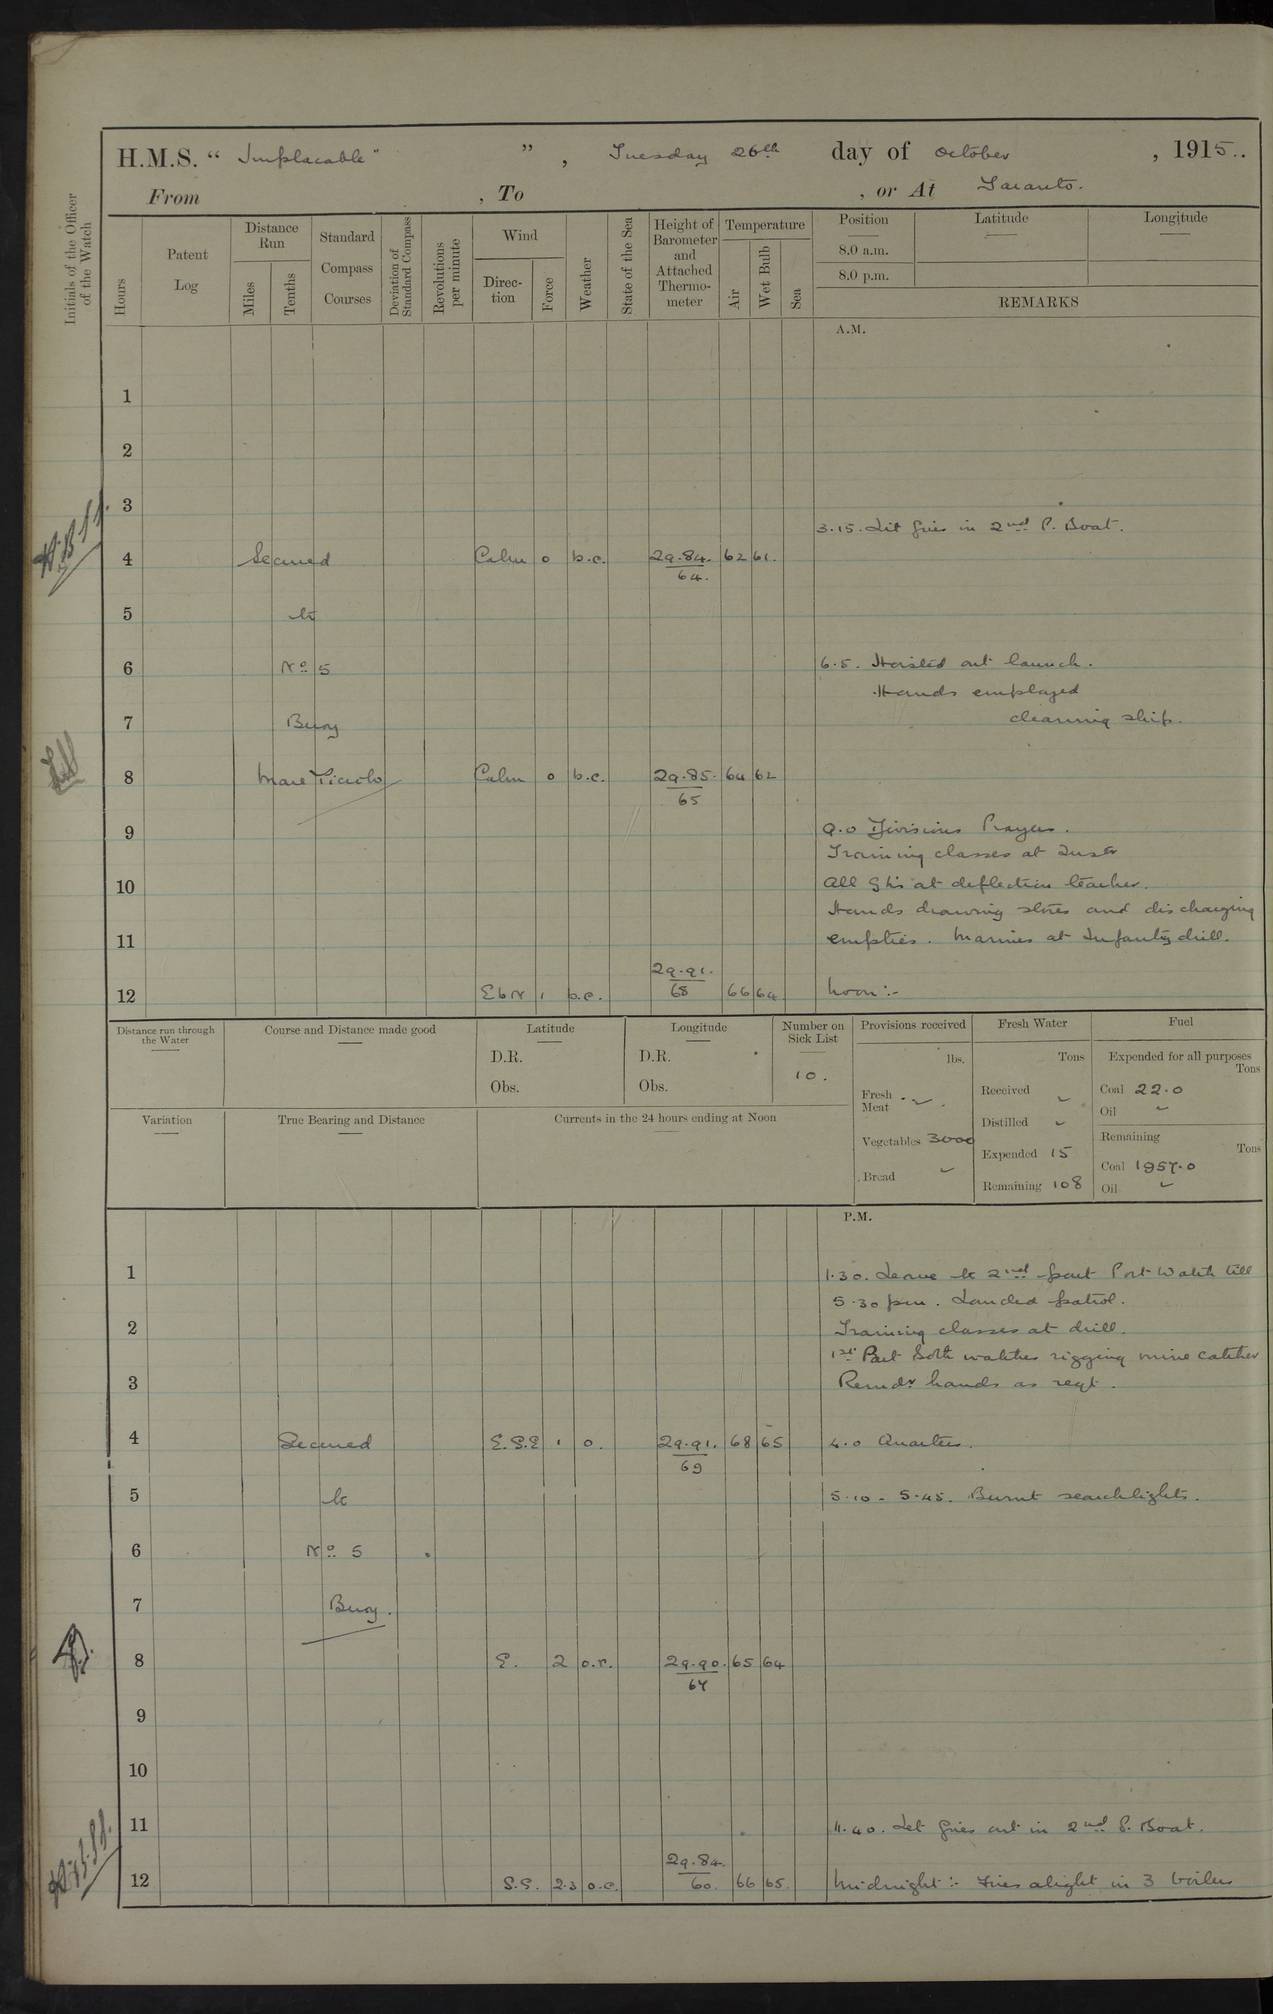 H.M.S. " Implacable" " , Tuesday 26th day of October , 1915..
From , To , or At Taranto.
Initials of the Officer of the Watch
Hours
Patent Log
Distance Run
Miles
Tenths
Standard Compass Courses
Deviation of Standard Compass
Revolutions per minute
Wind
Direction
Force
Weather
State of the Sea
Height of Barometer and Attached Thermometer
Temperature
Air
Wet Bulb
Sea
Position
Latitude
Longitude
8.0 a.m.
8.0 p.m.
REMARKS
A.M.
1
2
3
3.15. Lit fires in 2nd P. Boat.
4 Secured Calm 0 b.c. 29.84. 62 61.
64.
5 to
6 No 5 6.5. Hoisted out launch.
Hands employed
7 Buoy cleaning ship.
8 Mare Piccolo Calm 0 b.c. 29.85. 64 62
65
9 9.0 Divisions Prayers.
Training classes at Instr
10 All G.L's at deflection teacher.
Hands drawing stores and discharging
11 empties. Marines at Infantry drill.
29.91.
12 E b N 1 b.c. 68 66 64 Noon :-
Distance run through the Water
Course and Distance made good
Latitude
D.R.
Obs.
Longitude
D.R.
Obs.
Number on Sick List
10.
Provisions received
lbs.
Fresh Meat
Vegetables 3000
Bread
Fresh Water
Tons
Received
Distilled
Expended 15
Remaining 108
Fuel
Expended for all purposes
Tons
Coal 22.0
Oil
Remaining
Tons
Coal 1957.0
Oil
Variation
True Bearing and Distance
Currents in the 24 hours ending at Noon
P.M.
1 1.30. Leave to 2nd part Port Watch till
5.30 pm. Landed patrol.
2 Training classes at drill.
1st Part both watches rigging mine catcher
3 Remdr hands as reqt.
4 Secured E.S.E 1 o. 29.91. 68 65 4.0 Quarters.
69
5 to 5.10 - 5.45. Burnt searchlights.
6 No 5
7 Buoy.
8 E. 2 o.r. 29.90. 65 64
67
9
10
11 11.40. Let fires out in 2nd P. Boat.
29.84.
12 S.E. 2.3 o.c. 60. 66 65. Midnight :- Fires alight in 3 boilers